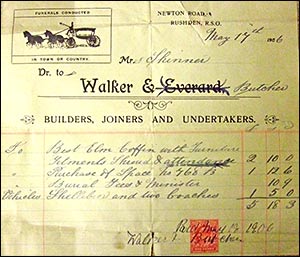 FUNERALS CONDUCTED
IN TOWN OR COUNTRY.
NEWTON ROAD
RUSHDEN, R.S.O.
May 17th 1906
Mrs Skinner
Dr. to
Walker & Everard, Butcher
BUILDERS, JOINERS AND UNDERTAKERS.
To Best Elm Coffin with Furniture
Fitments Shroud & attendance 2 10 0
Purchase of Space No 765 B 1 12 6
Burial Fees & Minister 10 9
Vehicles Shellibere and two Coaches 1 5 0
5 18 3
1906
Walker & Butcher